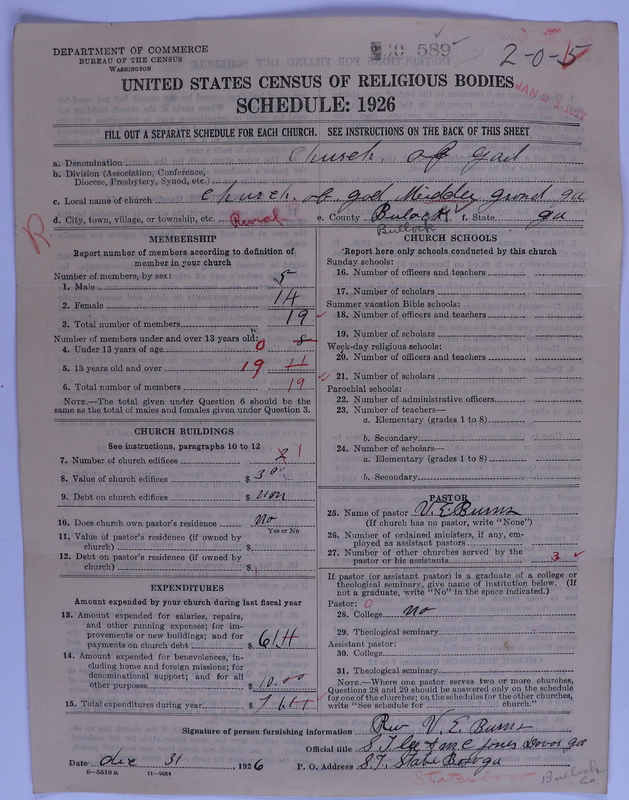 DEPARTMENT OF COMMERCE
BUREAU OF THE CENSUS
WASHINGTON
00 589
2-0-5
UNITED STATES CENSUS OF RELIGIOUS BODIES
SCHEDULE: 1926
FILL OUT A SEPARATE SCHEDULE FOR EACH CHURCH. SEE INSTRUCTIONS ON THE BACK OF THIS SHEET
a. Denomination Church of god
b. Division (Association, Conference, Diocese, Presbytery, Synod, etc.)
c. Local name of church Church of god Middle grond ga
d. City, town, village, or township, etc. Rural e. County Bulock f. State ga
R
Bullock
MEMBERSHIP
Report number of members according to definition of member in your church
Number of members, by sex:
1. Male 5
2. Female 14
3. Total number of members 19
Number of members under and over 13 years old:
4. Under 13 years of age 0 8
5. 13 years old and over 19 11
6. Total number of members 19
NOTE.—The total given under Question 6 should be the same as the total of males and females given under Question 3.
CHURCH BUILDINGS
See instructions, paragraphs 10 to 12
7. Number of church edifices 2 1
8. Value of church edifices $ 3 00
9. Debt on church edifices $ non
10. Does church own pastor's residence No
Yes or No
11. Value of pastor's residence (if owned by church) $
12. Debt on pastor's residence (if owned by church) $
EXPENDITURES
Amount expended by your church during last fiscal year
13. Amount expended for salaries, repairs, and other running expenses; for improvements or new buildings; and for payments on church debt $ 614
14. Amount expended for benevolences, including home and foreign missions; for denominational support; and for all other purposes $ 10.00
15. Total expenditures during year $
CHURCH SCHOOLS
Report here only schools conducted by this church
Sunday schools:
16. Number of officers and teachers
17. Number of scholars
Summer vacation Bible schools:
18. Number of officers and teachers
19. Number of scholars
Week-day religious schools:
20. Number of officers and teachers
21. Number of scholars
Parochial schools:
22. Number of administrative officers
23. Number of teachers—
a. Elementary (grades 1 to 8)
b. Secondary
24. Number of scholars—
a. Elementary (grades 1 to 8)
b. Secondary
PASTOR
25. Name of pastor V. E. Burns
(If church has no pastor, write "None")
26. Number of ordained ministers, if any, employed as assistant pastors
27. Number of other churches served by the pastor or his assistants 3
If pastor (or assistant pastor) is a graduate of a college or theological seminary, give name of institution below. (If not a graduate, write "No" in the space indicated.)
Pastor: 0
28. College no
29. Theological seminary
Assistant pastor:
30. College
31. Theological seminary
NOTE.—Where one pastor serves two or more churches, Questions 28 and 29 should be answered only on the schedule for one of the churches; on the schedules for the other churches, write "See schedule for church."
Signature of person furnishing information Rev V. E. Burns
Official title
Date dec 31, 1926 P. O. Address
8—5518a 11—9054
Statesboro
Bulloch Co.